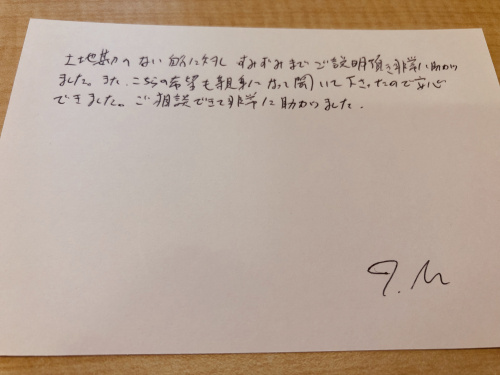 土地勘のない私に対し すみずみまで ご説明頂き非常に助かり
ました。また、こちらの希望も親身になって聞いて下さったので安心
できました。ご相談できて非常に助かりました.
J. M